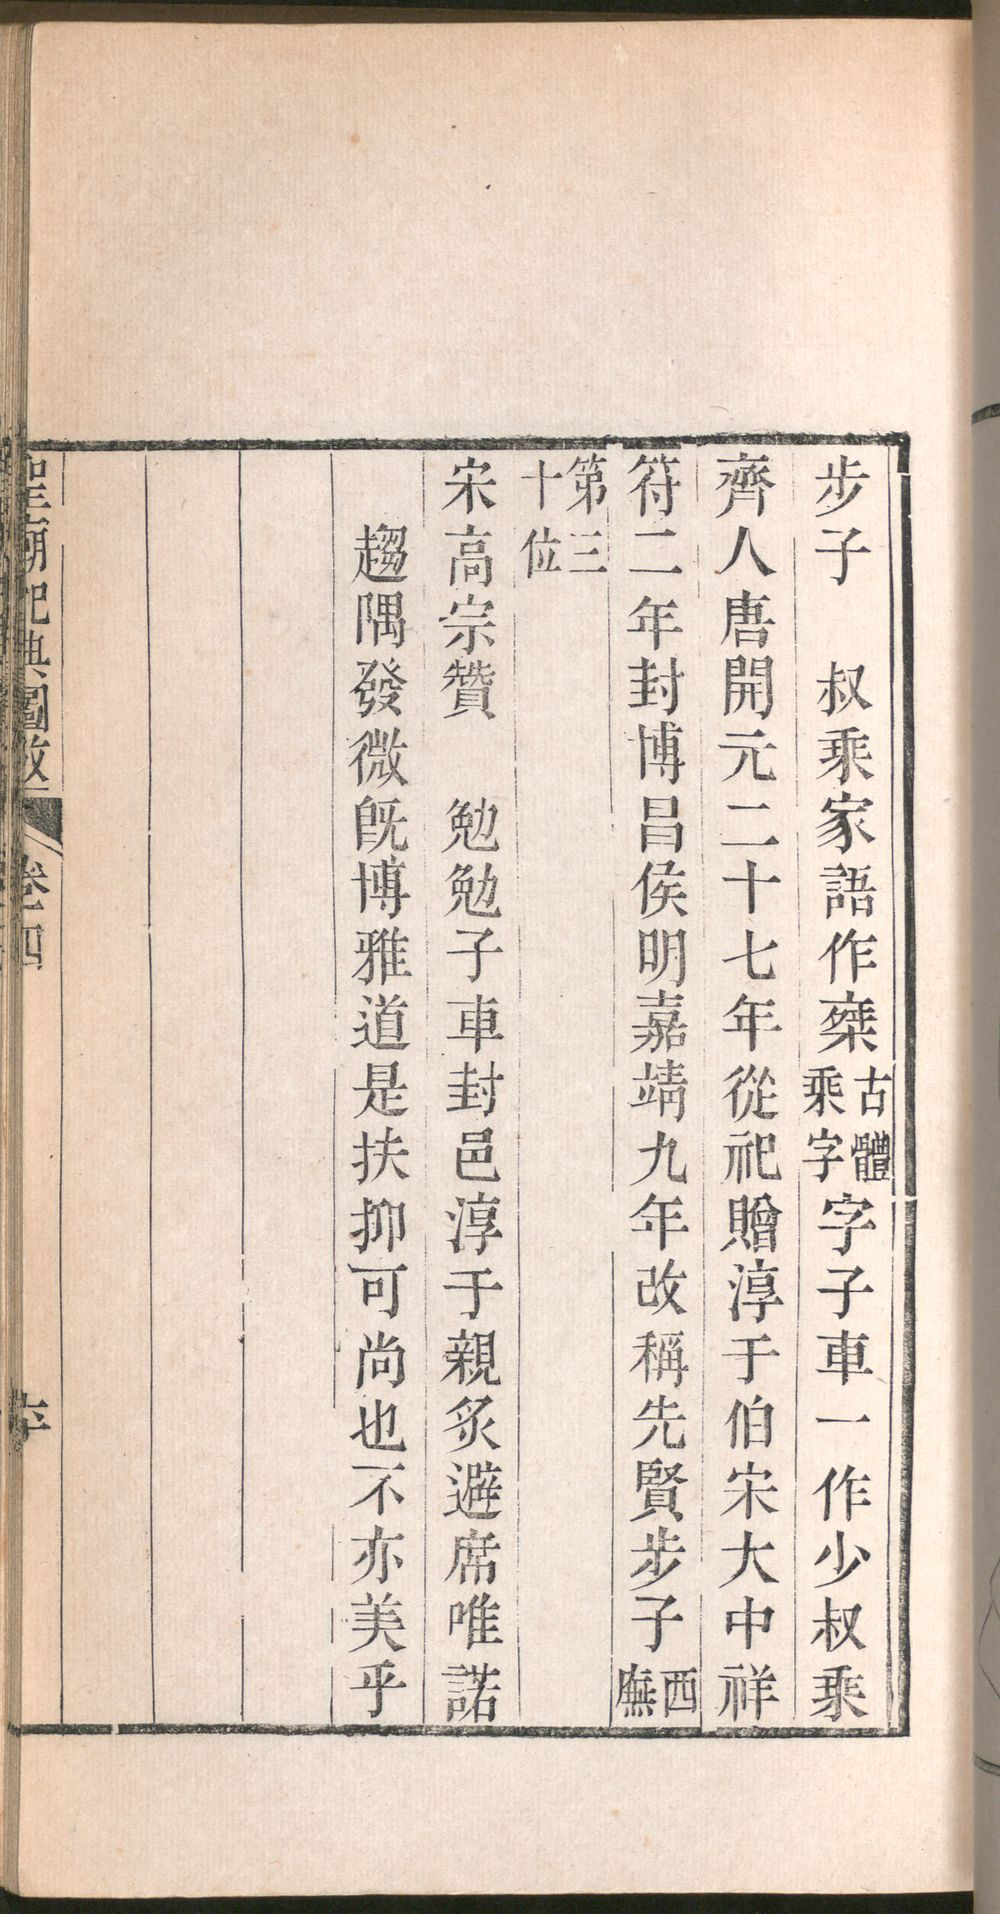 步子　叔乘家語作椉古體乘字字子車一作少叔乘
齊人唐開元二十七年從祀贈淳于伯宋大中祥
符二年封博昌侯明嘉靖九年改稱先賢步子西廡
第三十位
宋高宗贊　勉勉子車封邑淳于親炙避席唯諾
趨隅發微旣博雅道是扶抑可尚也不亦美乎
聖廟祀典圖攷　卷四